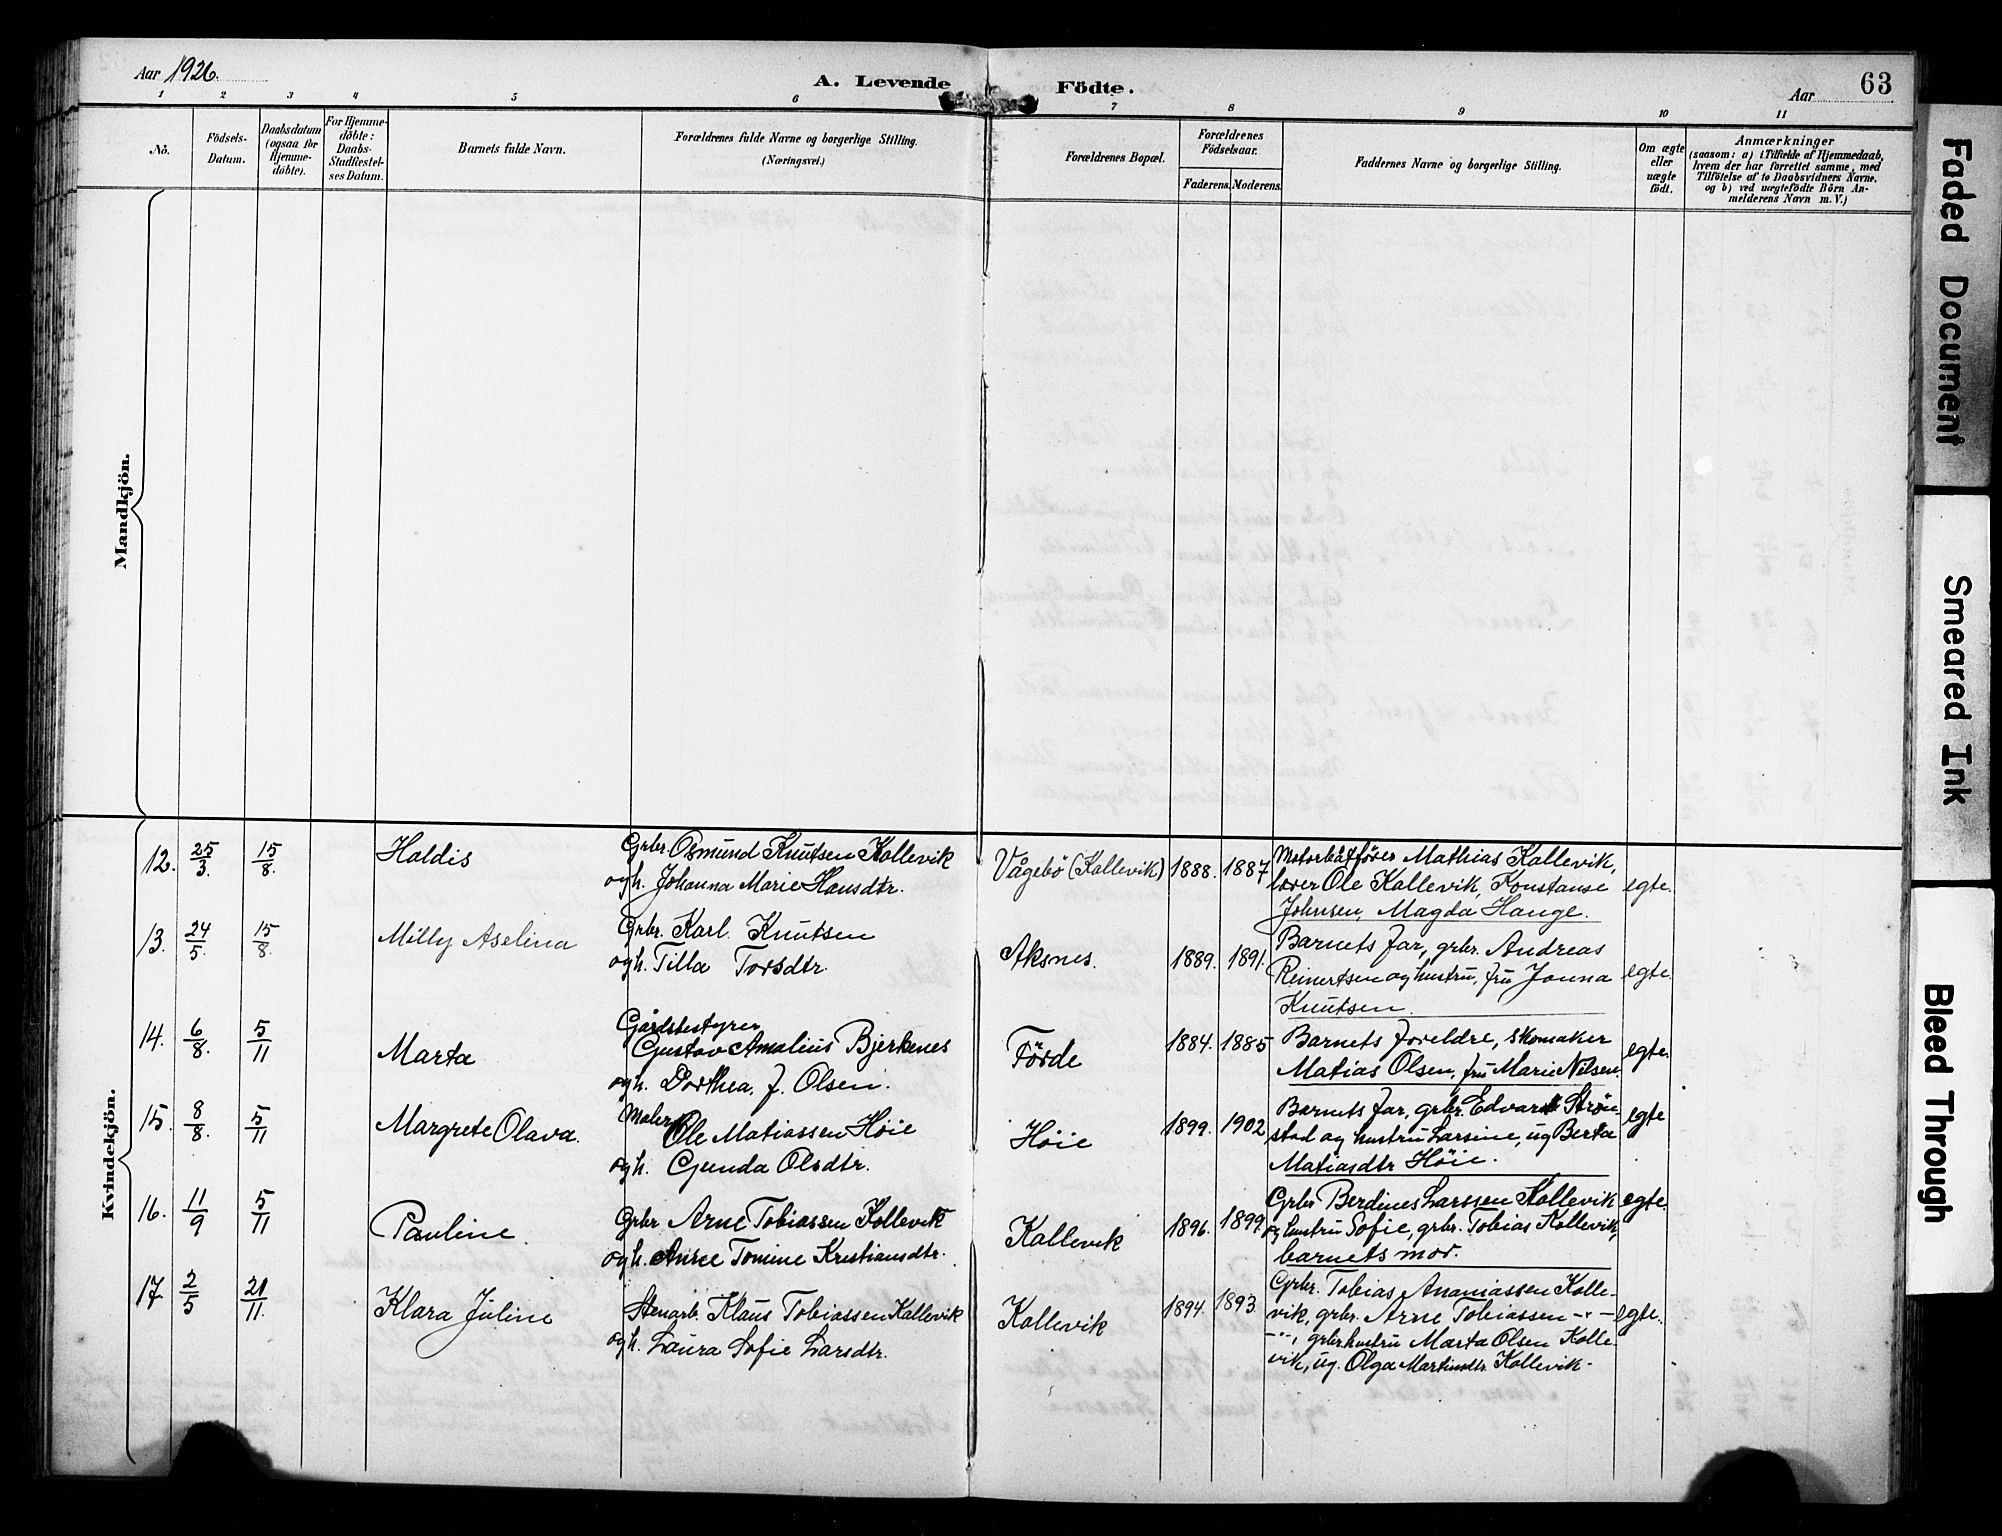 Aar 1926.
A. Levende Födte.
Aar
63
1 2 3 4 5 6 7 8 9 10 11
No.
Födsels-
Datum.
Daabsdatum
(ogsaa for
Hjemme-
döbte).
For Hjemme-
döbte:
Daabs-
Stadfestel-
ses Datum.
Barnets fulde Navn.
Forældrenes fulde Navne og borgerlige Stilling.
(Næringsvei.)
Forældrenes Bopæl.
Forældrenes
Födselsaar.
Faderens. Moderens.
Faddernes Navne og borgerlige Stilling.
Om ægte
eller
uægte
födt.
Anmærkninger
(saasom: a) i Tilfælde af Hjemmedaab,
hvem der har forrettet samme, med
Tilföielse af to Daabsvidners Navne.
og b) ved uægtefödte Börn An-
melderens Navn m. V.)
Mandkjön.
Kvindekjön.
12. 25/3. 15/8. Haldis
Grbr. Osmund Knutsen Kallevik
og h. Johanna Marie Hansdtr.
Vågebö (Kallevik) 1888. 1887
Motorbåtförer Mathias Kallevik,
lærer Ole Kallevik, Konstanse
Johnsen, Magda Hauge.
egte.
13. 24/5. 15/8. Milly Aselina
Grbr. Karl Knutsen
og h. Tilla Torsdtr.
Aksnes. 1889. 1891.
Barnets far, grbr. Andreas
Reinertsen og hustru, frü Jonna
Knutsen.
egte.
14. 6/8. 5/11 Marta
Gårdsbestyrer
Gustav Amalius Bjerkenes
og h. Dorthea. J. Olsen.
Förde 1884. 1885
Barnets foreldre, skomaker
Matias Olsen, frü Marie Nilsen.
egte.
15. 8/8. 5/11 Margrete Olava.
Maler
Ole Matiassen Höie
og h. Gunda Olsdtr.
Höie 1899. 1902
Barnets far, grbr. Edvard Strön-
stad og hustru Larsine, ug Berta
Matiasdtr Höie.
egte
16. 11/9 5/11 Pauline.
Grbr Arne Tobiassen Kallevik
og h. Anne Tomine Kristiansdtr.
Kallevik 1896. 1899
Grbr Berdines Larssen Kallevik
og hustru Sofie, grbr. Tobias Kallevik,
barnets mor.
egte.
17 2/5 21/11. Klara Juline
Stenarb. Klaus Tobiassen Kallevik
og h. Laura Sofie Larsdtr.
Kallevik 1894. 1893.
Grbr. Tobias Ananiassen Kalle-
vik, grbr. Arne Tobiassen -"-
-"-, grbr.hustru Marta Olsen Kalle-
vik, ug. Olga Martinsdtr. Kallevik.
egte.
Faded Document
Smeared Ink
Bleed Through